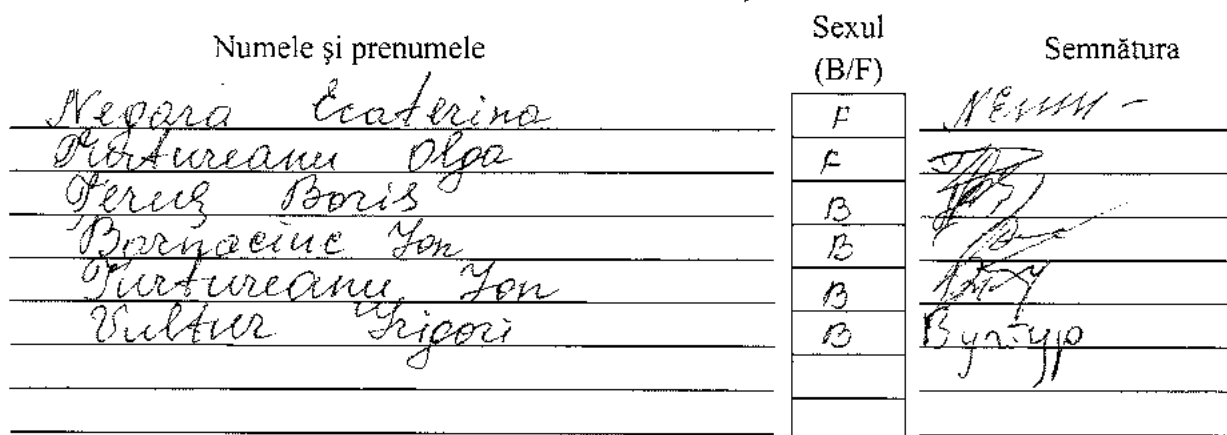 Numele şi prenumele Sexul (B/F) Semnătura
Negara Ecaterina F
Turtureanu Olga F
Boris B
Ion B
Turtureanu Ion B
Vultur Grigori B Вултур